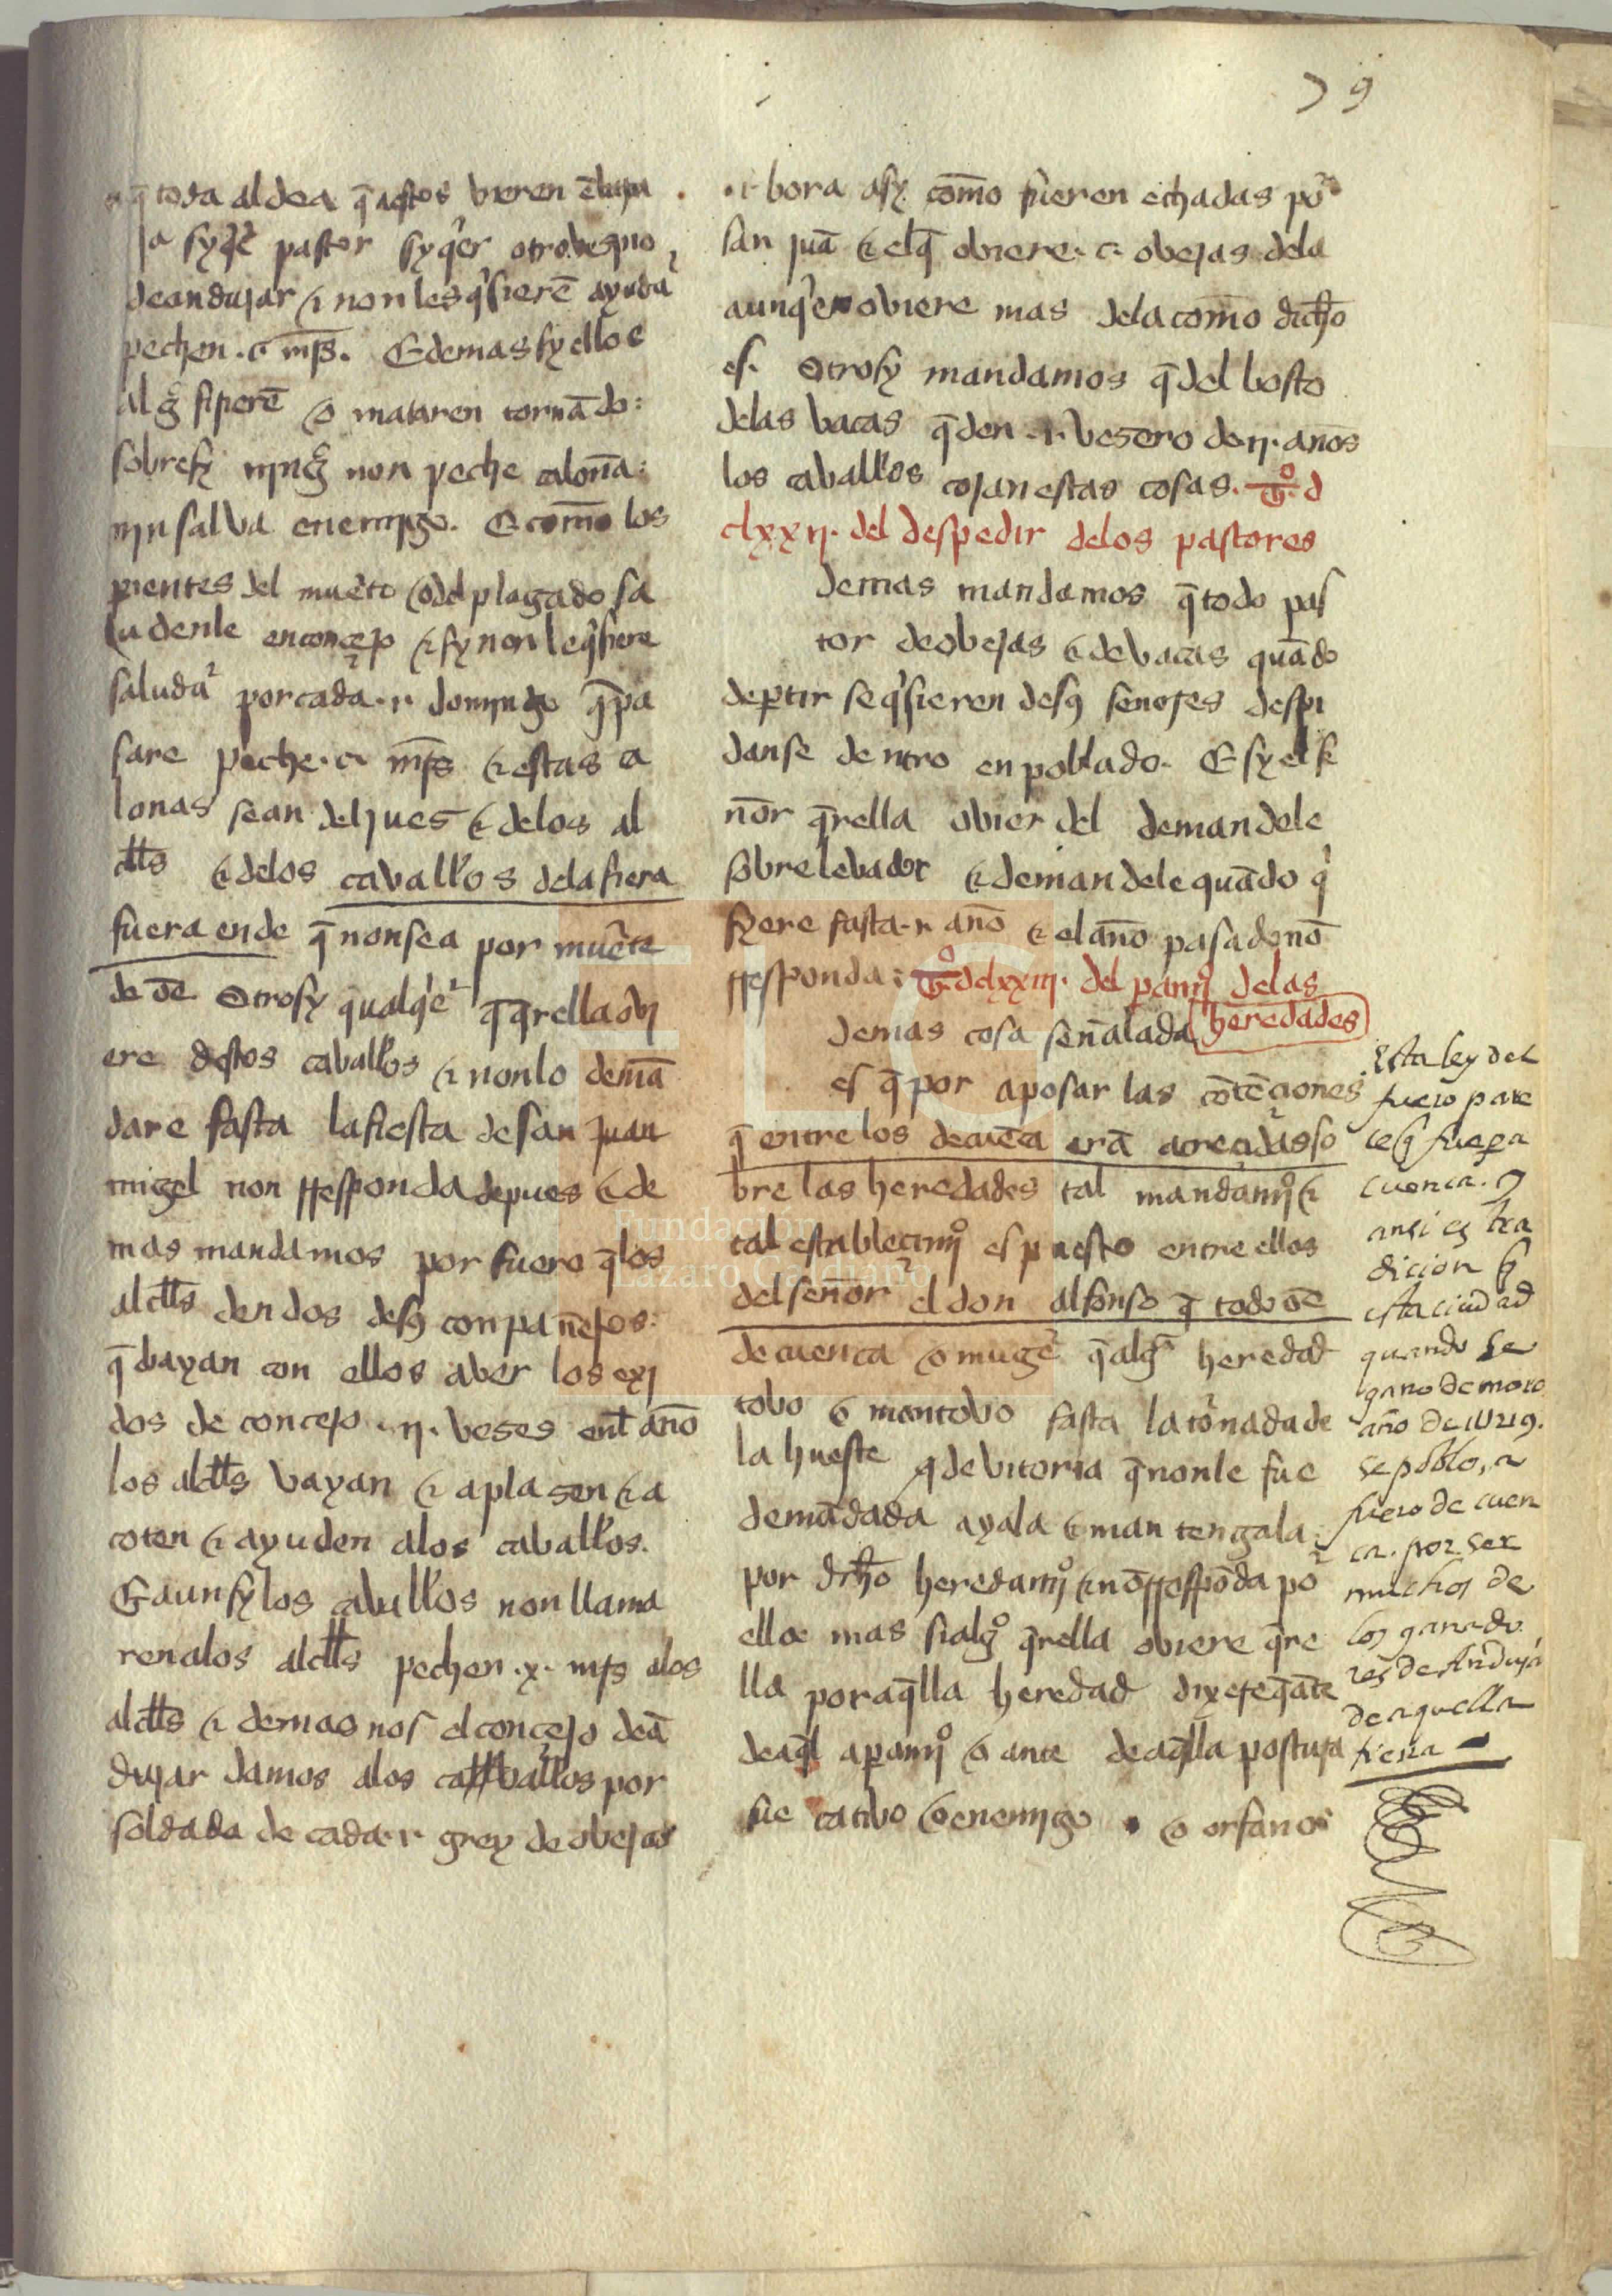 79
q̄ toda aldea q̄ aestos vieren
ja syq̇er pastor syq̇er otro vesino
deandujar ⁊ non les q̇sierē ayudar
pechen .c. mr̄s. E demas sy ellos
alg̃ firierē o mataren tornādo:
sobresy ning̃ non peche caloña:
nin salva enemigo. E com̄o los
parientes del muerto o del plagado sa
ludenle en conçejo ⁊ sy non le q̇siere
saludar por cada .i. domingo q̄ pa
sare peche .c. mr̄s ⁊ estas ca
lonas sean del jues ⁊ delos al
cłłs ⁊ delos cavałłos dela fiera
fuera ende q̄ non sea por muerte
de ōe Otrosy qualq̇er q̄ q̄rella ovi
ere destos cavałłos ⁊ non lo demā
dare fasta la fiesta de san juan
migel non rresponda depues ⁊ de
mas mandamos por fuero q̄ los
alcłłs den dos desꝯ conpañeros:
q̄ vayan con ellos aver los exi
dos de concejo .ii. veses enł año
los alcłłs vayan ⁊ aplasen ⁊ a
coten ⁊ ayuden alos cavałłos.
E aun sy los cavałłos non llama
ren alos alcłłs pechen .x. mr̄s alos
alcłłs ⁊ demas nos el conçejo deā
dujar damos alos cavałłos por
soldada de cada .i. grey de obejas
.i. bora asy com̄o fueren echadas por
san juā ⁊ el q̄ obiere .c. obejas dela
aunq̇en obiere mas dela com̄o dicħo
es. Otrosy mandamos q̄ del busto
delas vacas q̄ den .i. veserro de .ii. años
los cavałłos cojan estas cosas. Tº. d
clxxii. del despedir delos pastores
demas mandamos q̄ todo pas
tor de obejas ⁊ de vacas quādo
departir se q̇sieren desꝯ señores despi
danse dentro en poblado. E sy el se
ñor q̄rella obier del demandele
sobrelevador ⁊ demandele quādo q̇
syere fasta .i. año ⁊ el año pasado nō
rresponda: Tº. dclxxiii. del paramiº delas
heredades
demas cosa señalada
es q̄ por aposar las cōtēçiones
q̄ entre los decuēca erā acreçidas so
bre las heredades tal mandamiº ⁊
tal establecimiº es puesto entre ellos
del señor el don alfonso q̄ todo ōe
de cuenca o muger q̄ algª heredad
tobo o mantobo fasta la tornada de
la hueste q̄ de vitoria q̄ non le fue
demādada ayala ⁊ mantengala
por dicħo heredamiº ⁊ nō rrespōda por
ello mas si algº q̄rella obiere q̄re
lla por aq̄lla heredad dixere q̄ ate
de aq̄l paramiº o ante de aq̄lla postura
fue cativo o enemigo o orfano
Esta ley del
fuero pare
ce q̄ fue pa
cuenca. y
ansi es tra
dicion q̄
esta ciudad
quando se
gano de moros
año de
se poblo, a
fuero de cuen
ca. por ser
muchos de
los ganado
res de Andujar
de aquella
tierra
Fundación
Lázaro Galdiano